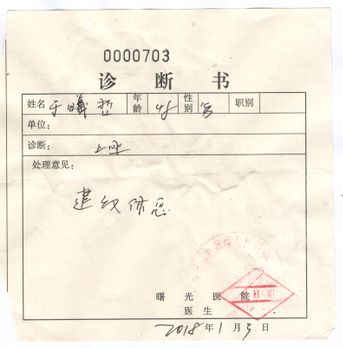 0000703
诊断书
姓名 于曦哲 年龄 4岁 性别 男 职别
单位：
诊断： 上呼
处理意见：
建议休息
曙光医院
医生
2018年1月3日